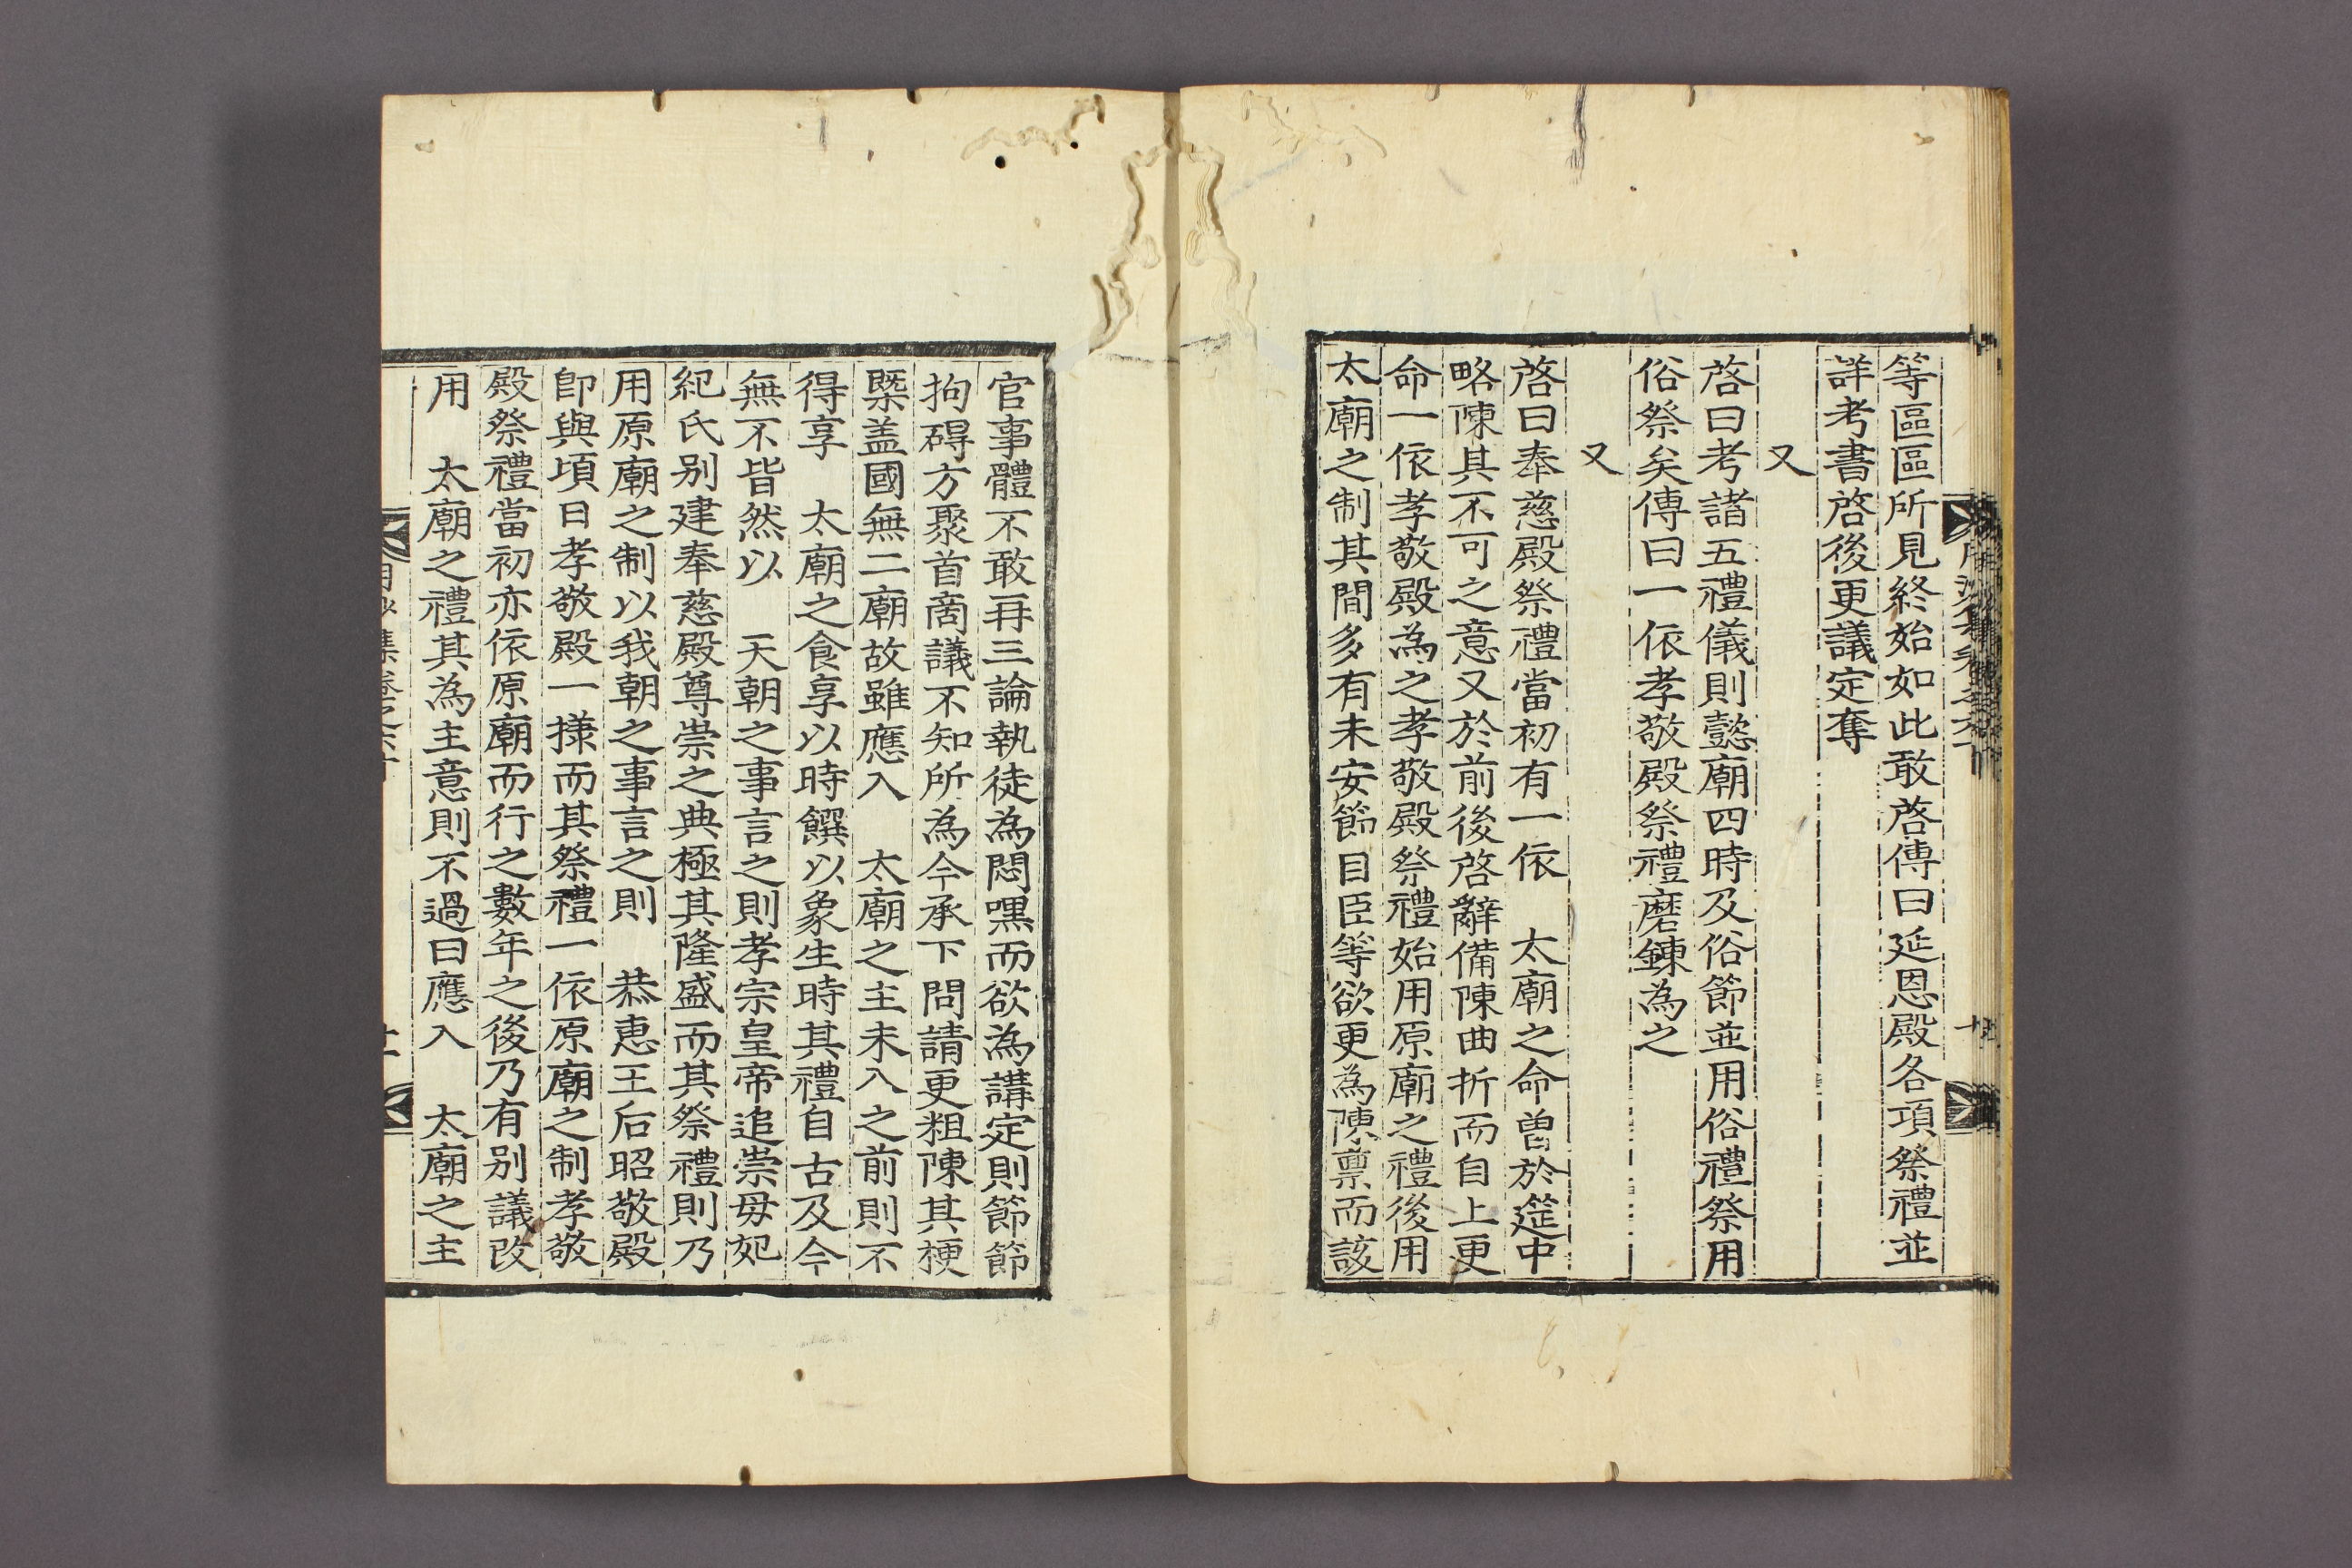 等區區所見終始如此敢啓傳曰延恩殿各項祭禮並
詳考書啓後更議定奪
又
啓曰考諸五禮儀則懿廟四時及俗節並用俗禮祭用
俗祭矣傳曰一依孝敬殿祭禮磨鍊為之
又
啓曰奉慈殿祭禮當初有一依 太廟之命曽於筵中
略陳其不可之意又於前後啓辭備陳曲折而自上更
命一依孝敬殿為之孝敬殿祭禮始用原廟之禮後用
太廟之制其間多有未安節目臣等欲更為陳禀而該
官事體不敢再三論執徒為悶嘿而欲為講定則節節
拘碍方聚首商議不知所為今承下問請更粗陳其梗
槩盖國無二廟故雖應入 太廟之主未入之前則不
得享 太廟之食享以時饌以象生時其禮自古及今
無不皆然以 天朝之事言之則孝宗皇帝追崇毋妃
紀氏别建奉慈殿尊崇之典極其隆盛而其祭禮則乃
用原廟之制以我朝之事言之則 恭惠王后昭敬殿
卽與頃日孝敬殿一㨾而其祭禮一依原廟之制孝敬
殿祭禮當初亦依原廟而行之數年之後乃有别議改
用 太廟之禮其為主意則不過曰應入 太廟之主